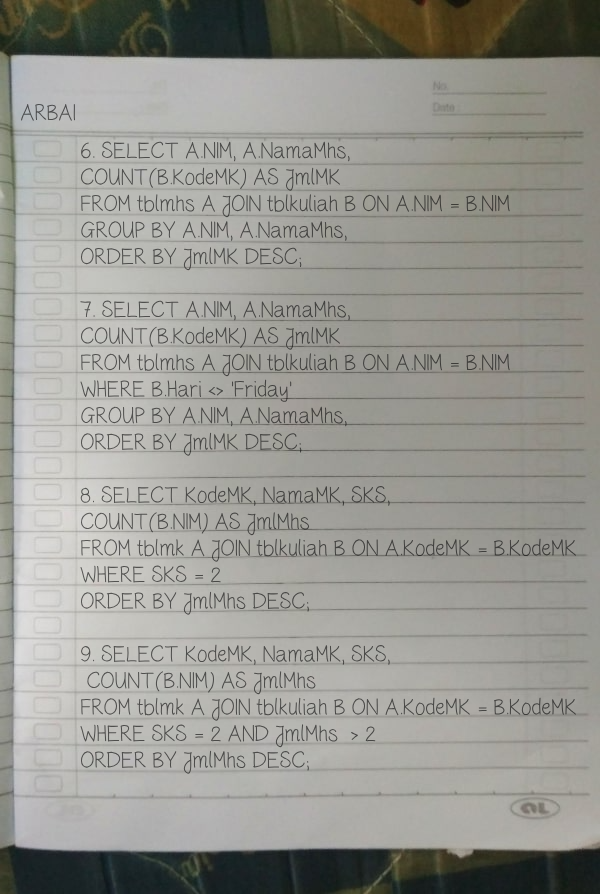 No.
Date :
ARBAI
6. SELECT A.NIM, A.NamaMhs,
COUNT(B.KodeMK) AS JmlMK
FROM tblmhs A JOIN tblkuliah B ON A.NIM = B.NIM
GROUP BY A.NIM, A.NamaMhs,
ORDER BY JmlMK DESC;
7. SELECT A.NIM, A.NamaMhs,
COUNT(B.KodeMK) AS JmlMK
FROM tblmhs A JOIN tblkuliah B ON A.NIM = B.NIM
WHERE B.Hari <> 'Friday'
GROUP BY A.NIM, A.NamaMhs,
ORDER BY JmlMK DESC;
8. SELECT KodeMK, NamaMK, SKS,
COUNT(B.NIM) AS JmlMhs
FROM tblmk A JOIN tblkuliah B ON A.KodeMK = B.KodeMK
WHERE SKS = 2
ORDER BY JmlMhs DESC;
9. SELECT KodeMK, NamaMK, SKS,
COUNT(B.NIM) AS JmlMhs
FROM tblmk A JOIN tblkuliah B ON A.KodeMK = B.KodeMK
WHERE SKS = 2 AND JmlMhs > 2
ORDER BY JmlMhs DESC;